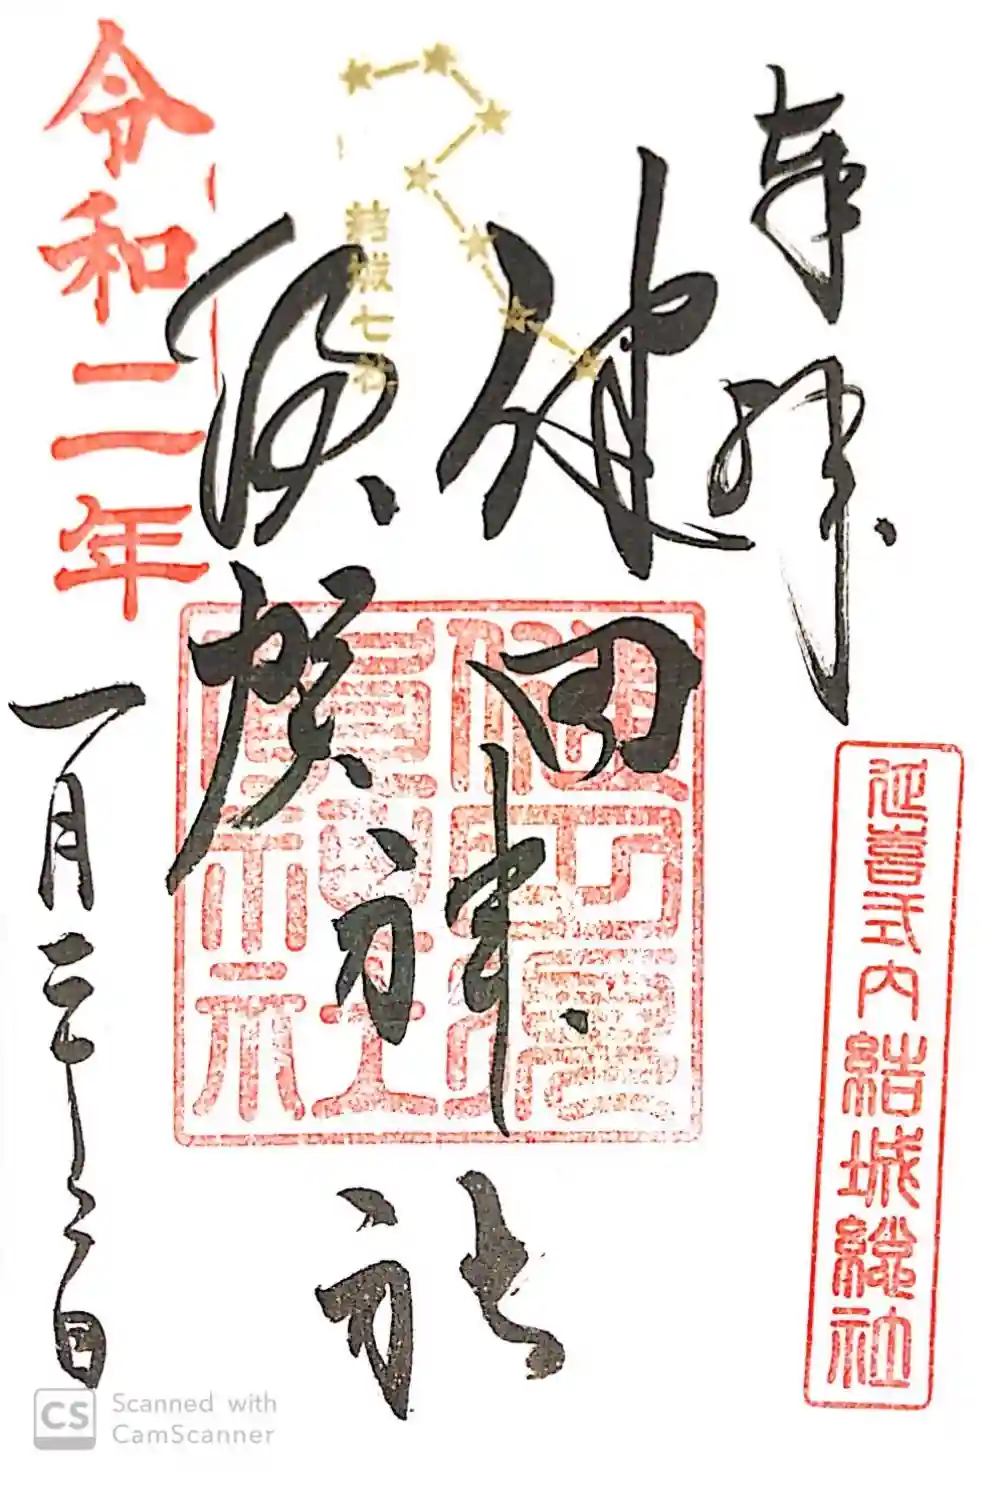 奉拝
延喜式内 結城総社
健田
須賀
神社
健田須賀神社
結城七社
令和二年
一月三十一日
Scanned with
CamScanner